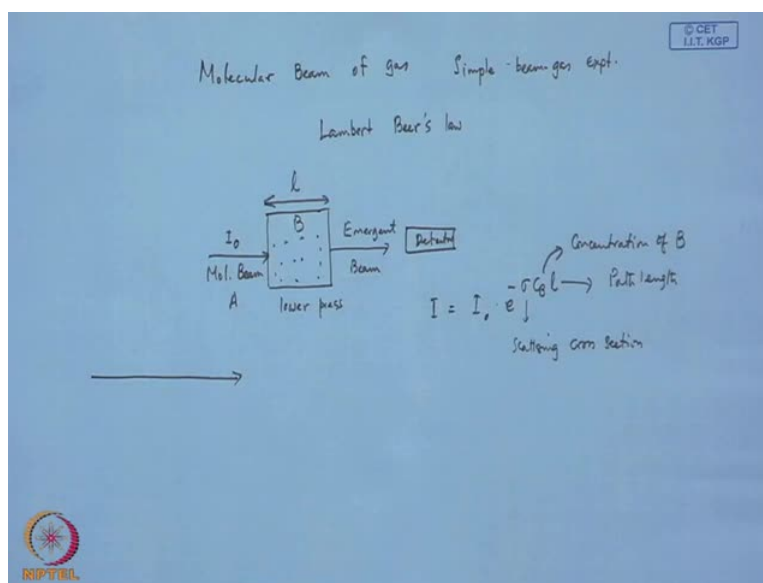 © CET
I.I.T. KGP
Molecular Beam of gas Simple-beam gas Expt.
Lambert Beer's law
l
I₀
B
Emergent
Detector
Mol. Beam
Beam
A
lower press
Concentration of B
I = I₀ · e^{-σ C_B l}
Path length
Scattering cross section
NPTEL